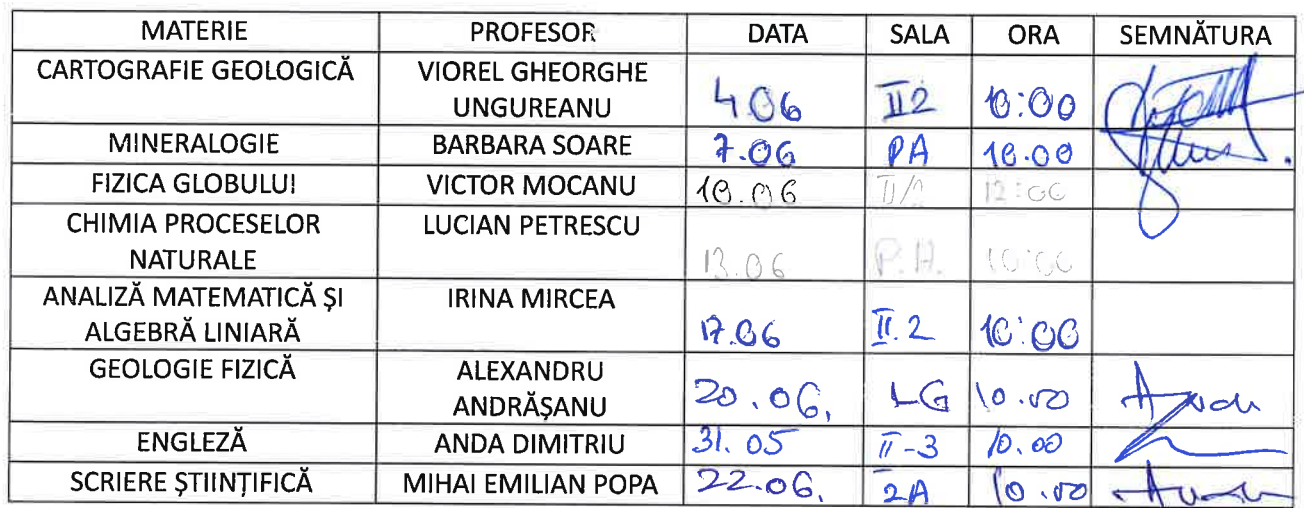 MATERIE PROFESOR DATA SALA ORA SEMNĂTURA
CARTOGRAFIE GEOLOGICĂ VIOREL GHEORGHE
UNGUREANU 4.06 II2 10:00
MINERALOGIE BARBARA SOARE 7.06 PA 10.00
FIZICA GLOBULUI VICTOR MOCANU 10.06 12:00
CHIMIA PROCESELOR LUCIAN PETRESCU
NATURALE 13.06 P.A. 10:00
ANALIZĂ MATEMATICĂ ȘI IRINA MIRCEA
ALGEBRĂ LINIARĂ 17.06 II.2 10:00
GEOLOGIE FIZICĂ ALEXANDRU
ANDRĂȘANU 20.06. LG 10.00
ENGLEZĂ ANDA DIMITRIU 31.05 II-3 10.00
SCRIERE ȘTIINȚIFICĂ MIHAI EMILIAN POPA 22.06. 2A 10.00